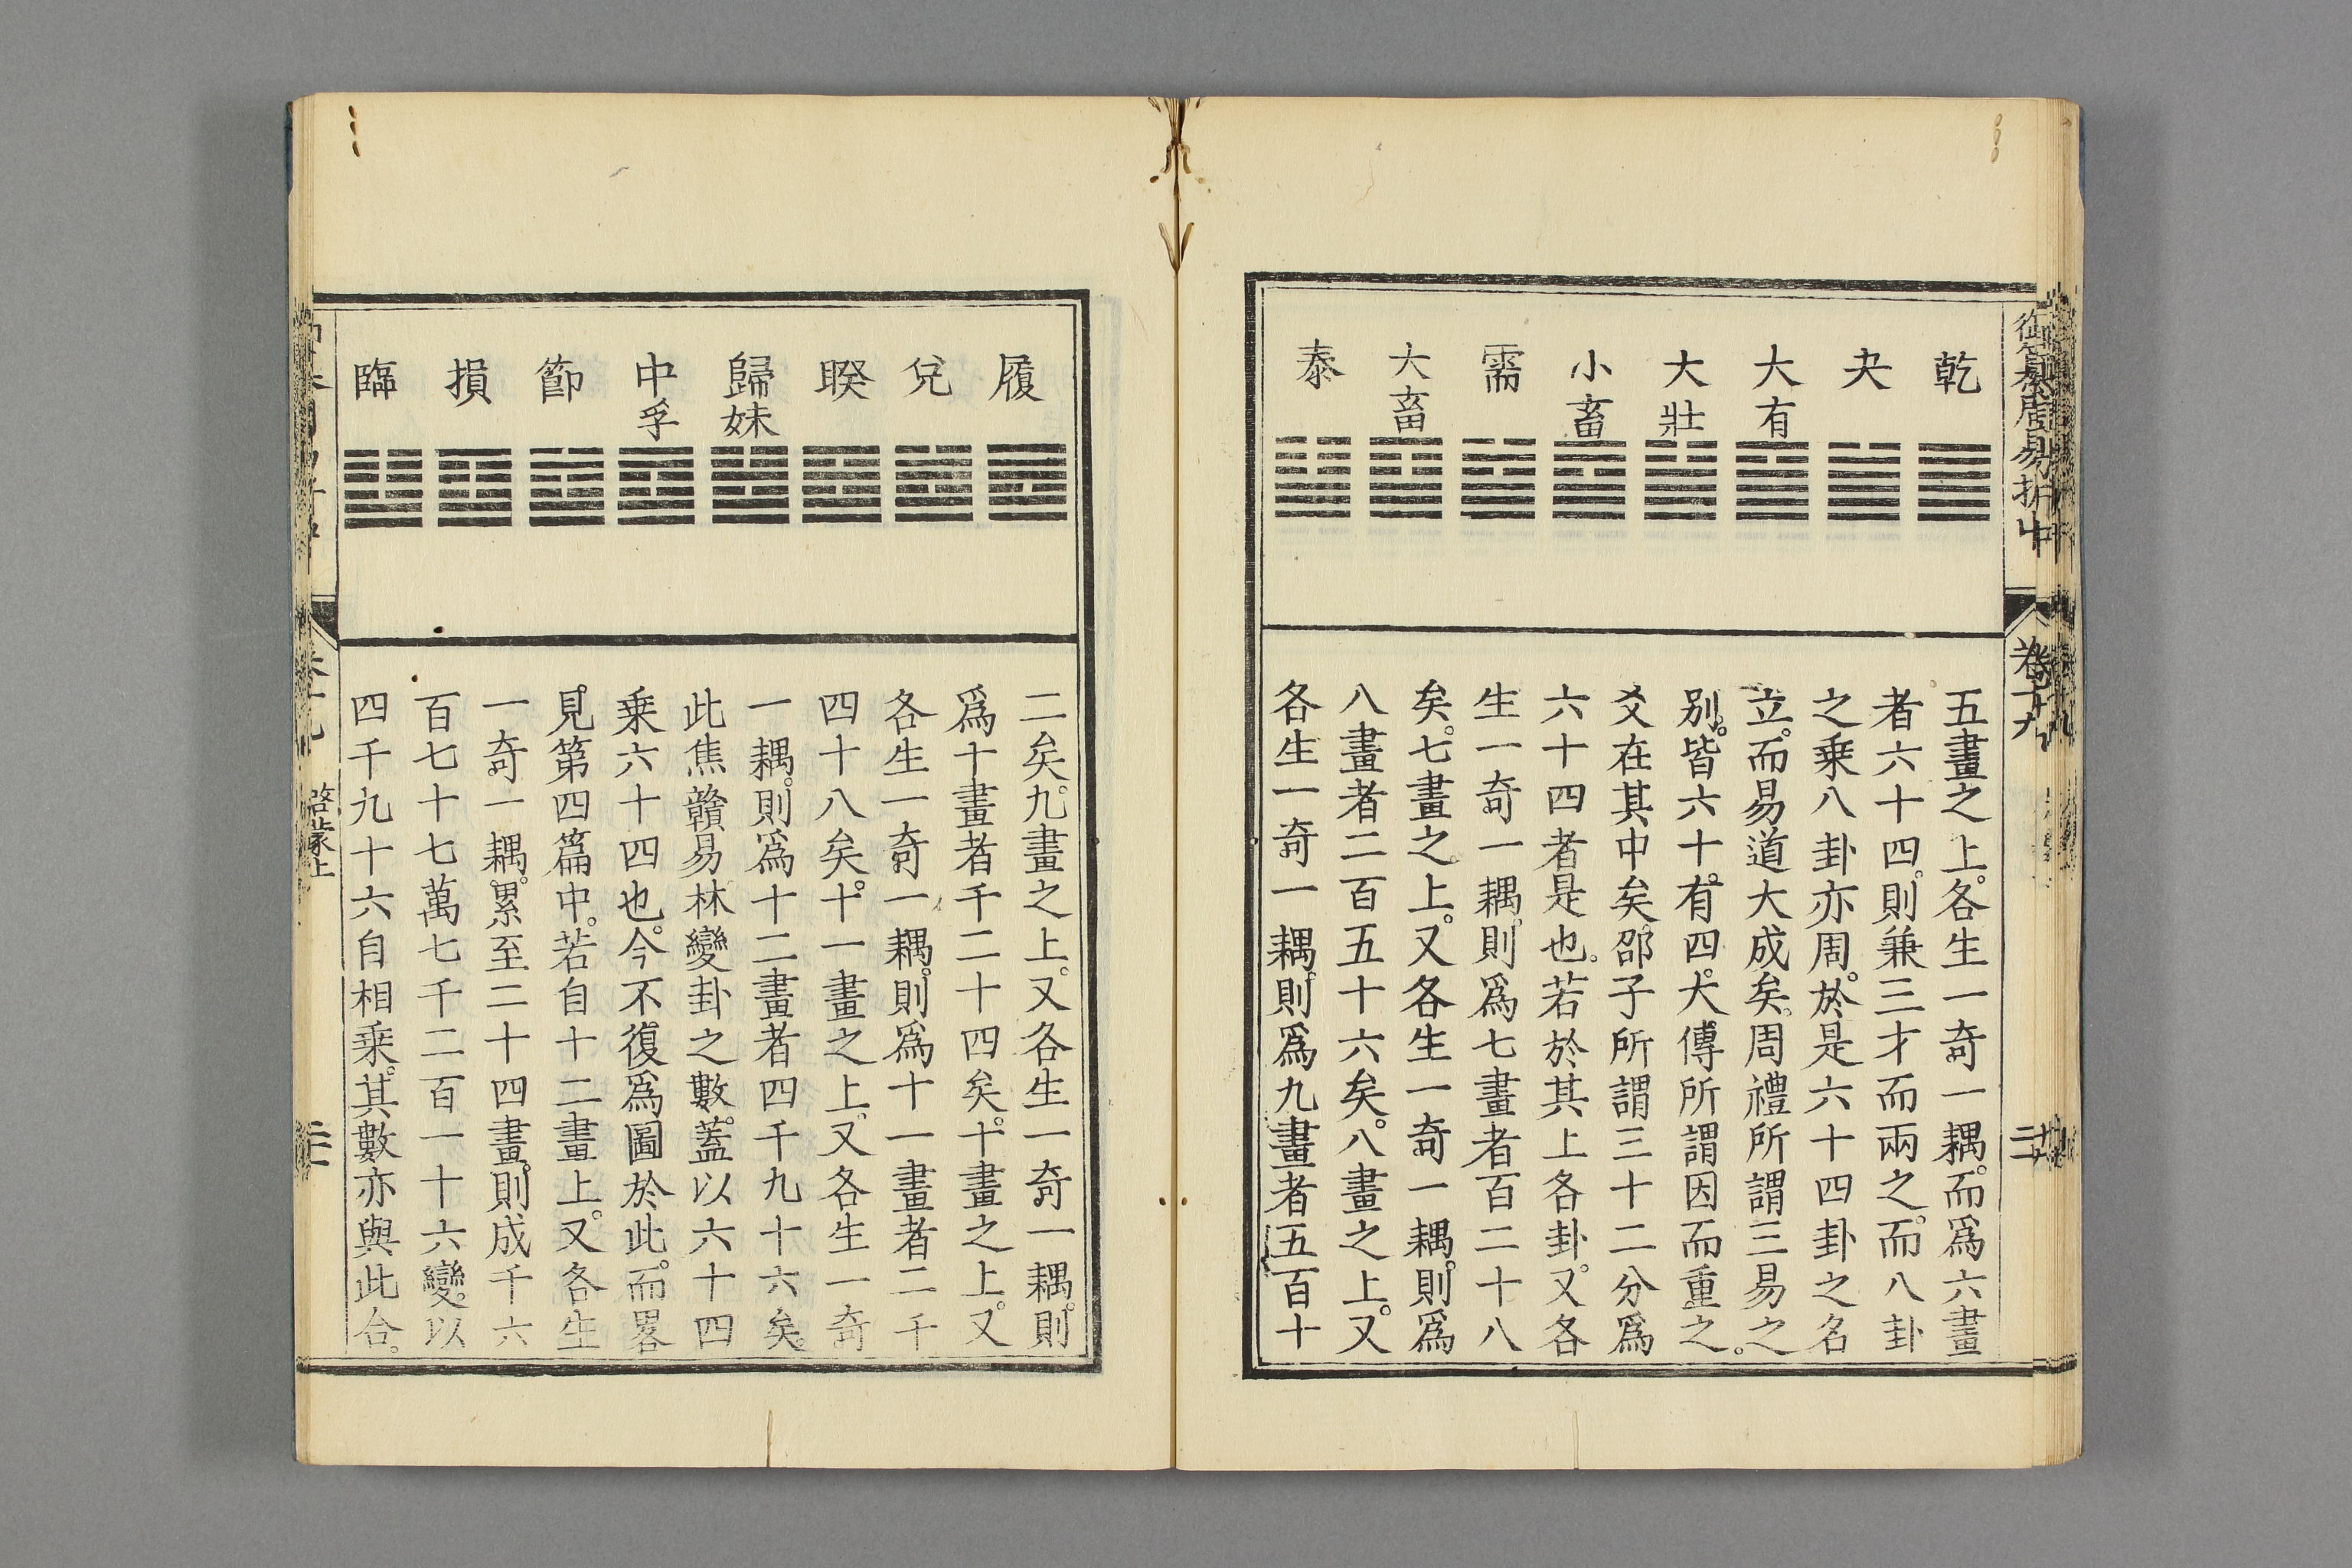 御纂周易折中
卷十九
乾
夬
大有
大壯
小畜
需
大畜
泰
五畫之上。各生一奇一耦。而爲六畫
者六十四。則兼三才而兩之。而八卦
之乘八卦亦周。於是六十四卦之名
立。而易道大成矣。周禮所謂三易之
別。皆六十。有四。大傳所謂因而重之。
爻在其中矣。邵子所謂三十二分爲
六十四者是也。若於其上各卦。又各
生一奇一耦。則爲七畫者百二十八
矣。七畫之上。又各生一奇一耦。則爲
八畫者二百五十六矣。八畫之上。又
各生一奇一耦。則爲九畫者五百十
履
兌
睽
歸妹
中孚
節
損
臨
二矣。九畫之上。又各生一奇一耦。則
爲十畫者千二十四矣。十畫之上。又
各生一奇一耦。則爲十一畫者二千
四十八矣。十一畫之上。又各生一奇
一耦。則爲十二畫者四千九十六矣。
此焦贛易林變卦之數。蓋以六十四
乘六十四也。今不復爲圖於此。而畧
見第四篇中。若自十二畫上。又各生
一奇一耦。累至二十四畫。則成千六
百七十七萬七千二百一十六變。以
四千九十六自相乘。其數亦與此合。
啓蒙上